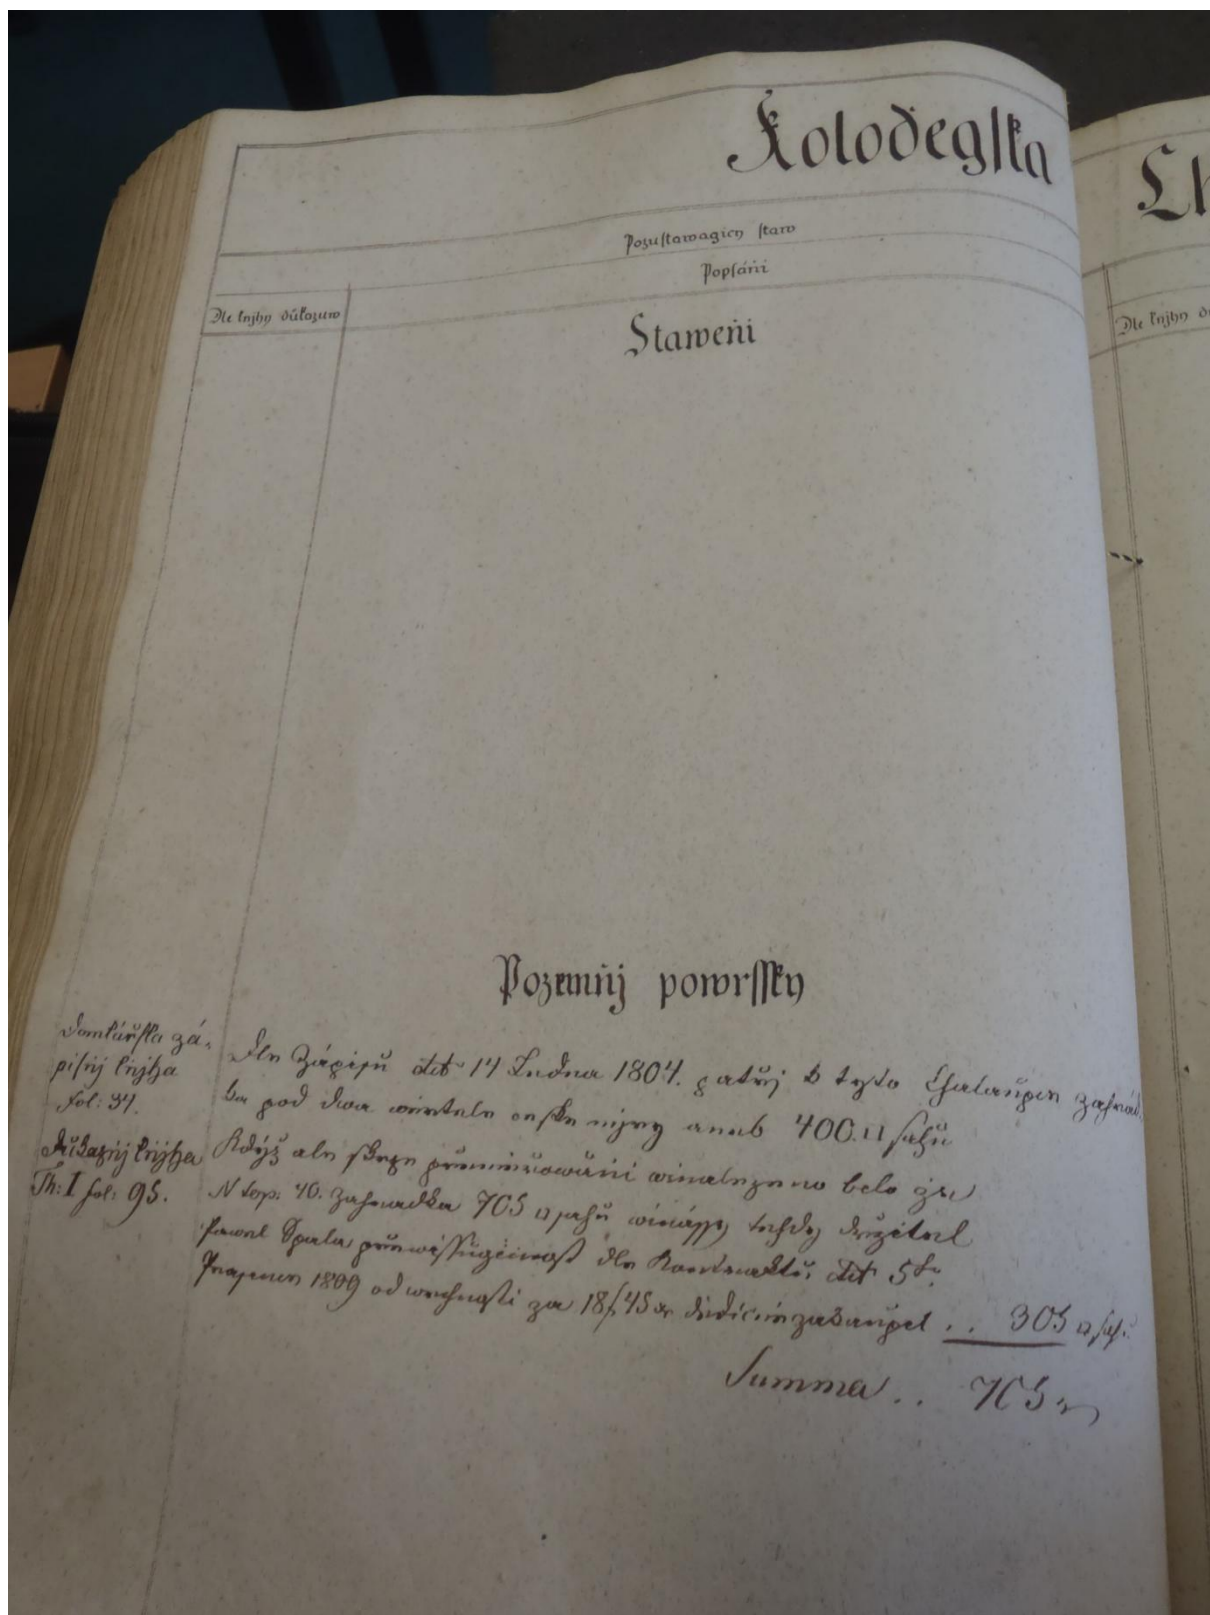 Kolodegska
Pozustawagicy staw
Popsáni
Dle knjhy důkazuw
Staweňi
Pozemňj powrssky
Domkářska zá-
pisnj knjha
fol: 34.
Důkaznj knjha
Th: I fol: 95.
Dle Zápisu dtt 14 Ledna 1804. patřj k tyto Chalaupce zahrád
ka pod dwa wiertele aneb 400. □ sahů
Když ale skrze přeměřowáni winalezeno belo že
N top: 40. Zahradka 705 □ sahů winássy tehdy držitel
Pawel Spala přewissugicnost dle Kontraktů dtt 5te
Prasynce 1809 od wrchnosti za 18 f 45 xr dědičně zakaupel . . 305 □ sah:
Summa . . 705
Lh
Dle knjhy d